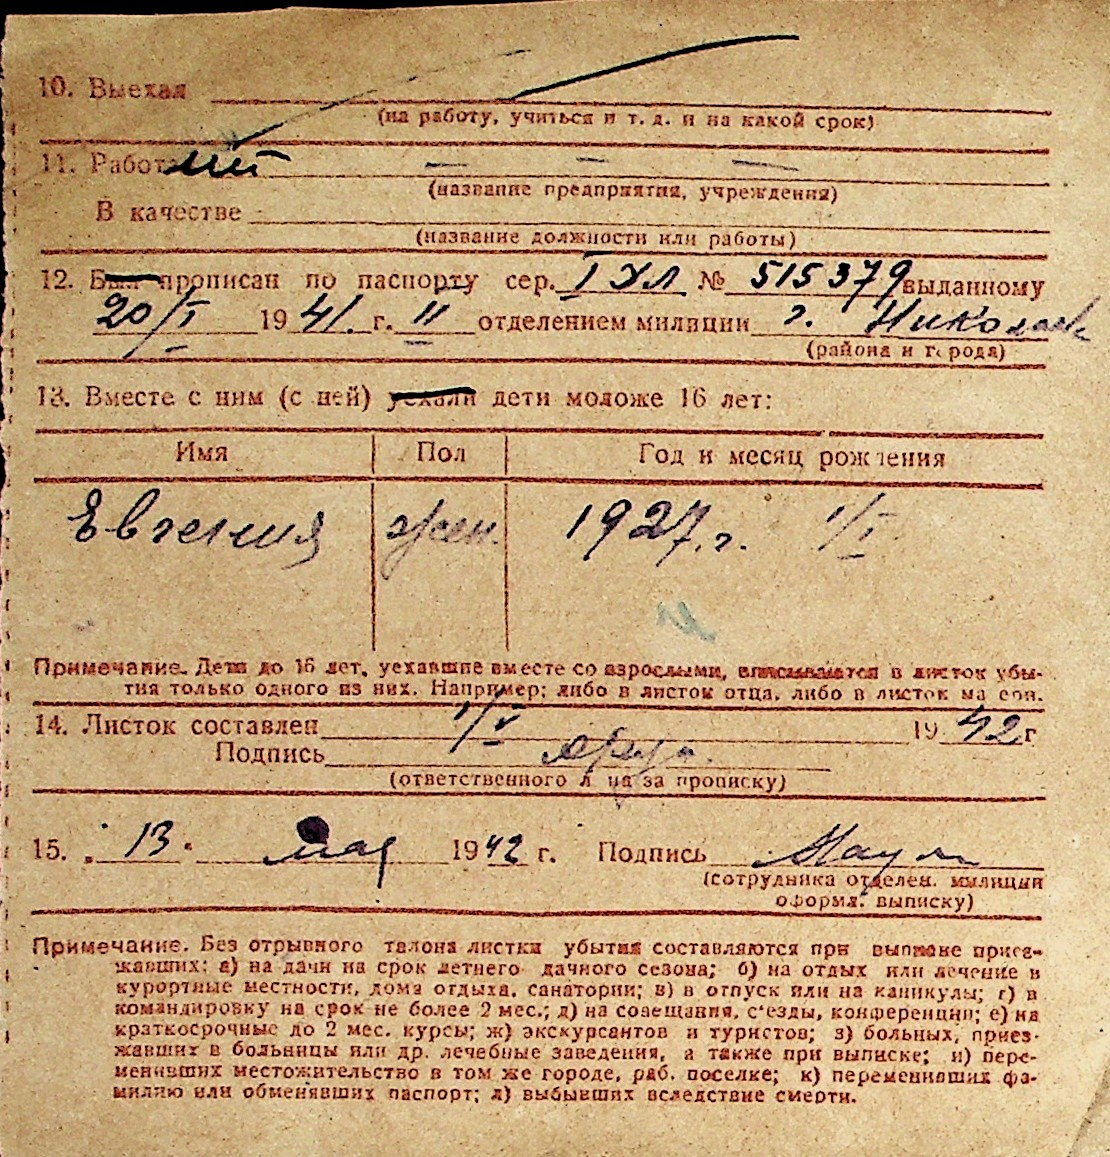 10. Выехал
(на работу, учиться и т. д. и на какой срок)
11. Работ
(название предприятия, учреждения)
В качестве
(название должности или работы)
12. Был прописан по паспорту сер. № 515379 выданному
20/I 1941. г. II отделением милиции г.
(района и города)
13. Вместе с ним (с ней) уехали дети моложе 16 лет:
Имя Пол Год и месяц рождения
Евгения жен. 1927.г. 1/I
Примечание. Дети до 16 лет, уехавшие вместе со взрослыми, вписываются в листок убы-
тия только одного из них. Например: либо в листок отца, либо в листок матери.
14. Листок составлен 1/V 1942г
Подпись
(ответственного лица за прописку)
15. „13" мая 1942 г. Подпись
(сотрудника отделен. милиции
оформл. выписку)
Примечание. Без отрывного талона листки убытия составляются при выписке приез-
жавших: а) на дачи на срок летнего дачного сезона; б) на отдых или лечение в
курортные местности, дома отдыха, санатории; в) в отпуск или на каникулы; г) в
командировку на срок не более 2 мес.; д) на совещания, с'езды, конференции; е) на
краткосрочные до 2 мес. курсы; ж) экскурсантов и туристов; з) больных, приез-
жавших в больницы или др. лечебные заведения, а также при выписке; и) пере-
менивших местожительство в том же городе, раб. поселке; к) переменивших фа-
милию или обменявших паспорт; л) выбывших вследствие смерти.